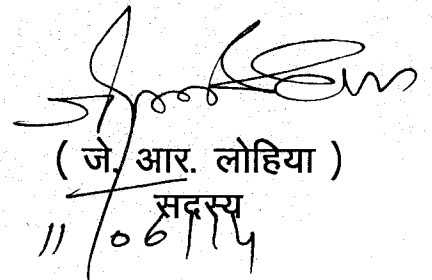 ( जे. आर. लोहिया )
सदस्य
11/06/14